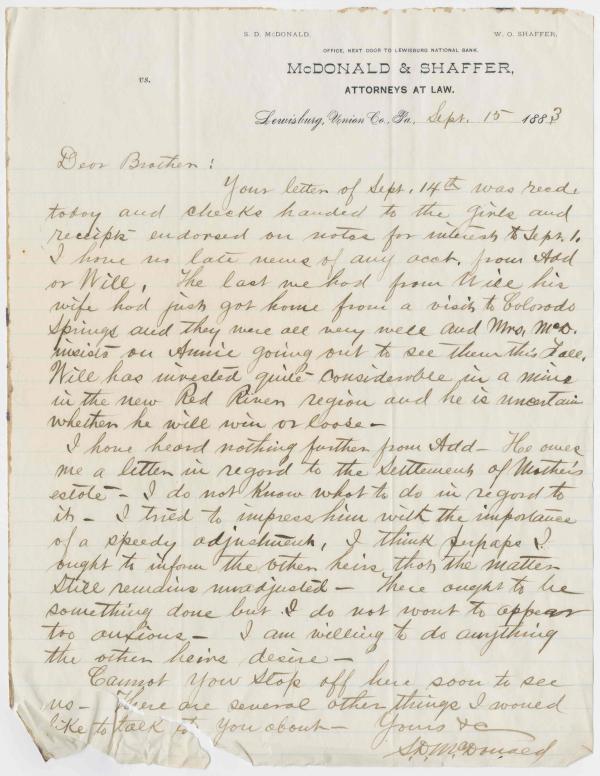 S. D. McDONALD.
W. O. SHAFFER.
OFFICE, NEXT DOOR TO LEWISBURG NATIONAL BANK.
McDONALD & SHAFFER,
vs.
ATTORNEYS AT LAW.
Lewisburg, Union Co., Pa., Sept. 15 1883
Dear Brother:
Your letter of Sept. 14th was recd.
today and checks handed to the girls and
receipts endorsed on notes for interest to Sept. 1.
I have no late news of any acct. from Add
or Will. The last we had from Will his
wife had just got home from a visit to Colorado
Springs and they were all very well and Mrs. McD.
insists on Annie going out to see them this Fall.
Will has invested quite considerable in a mine
in the new Red River region and he is uncertain
whether he will win or loose -
I have heard nothing further from Add - He owes
me a letter in regard to the settlement of Mother's
estate - I do not know what to do in regard to
it - I tried to impress him with the importance
of a speedy adjustment, I think perhaps I
ought to inform the other heirs that the matter
still remains unadjusted - There ought to be
something done but I do not want to appear
too anxious - I am willing to do anything
the other heirs desire -
Cannot you stop off here soon to see
us - There are several other things I would
like to talk to you about - Yours &c
S.D. McDonald